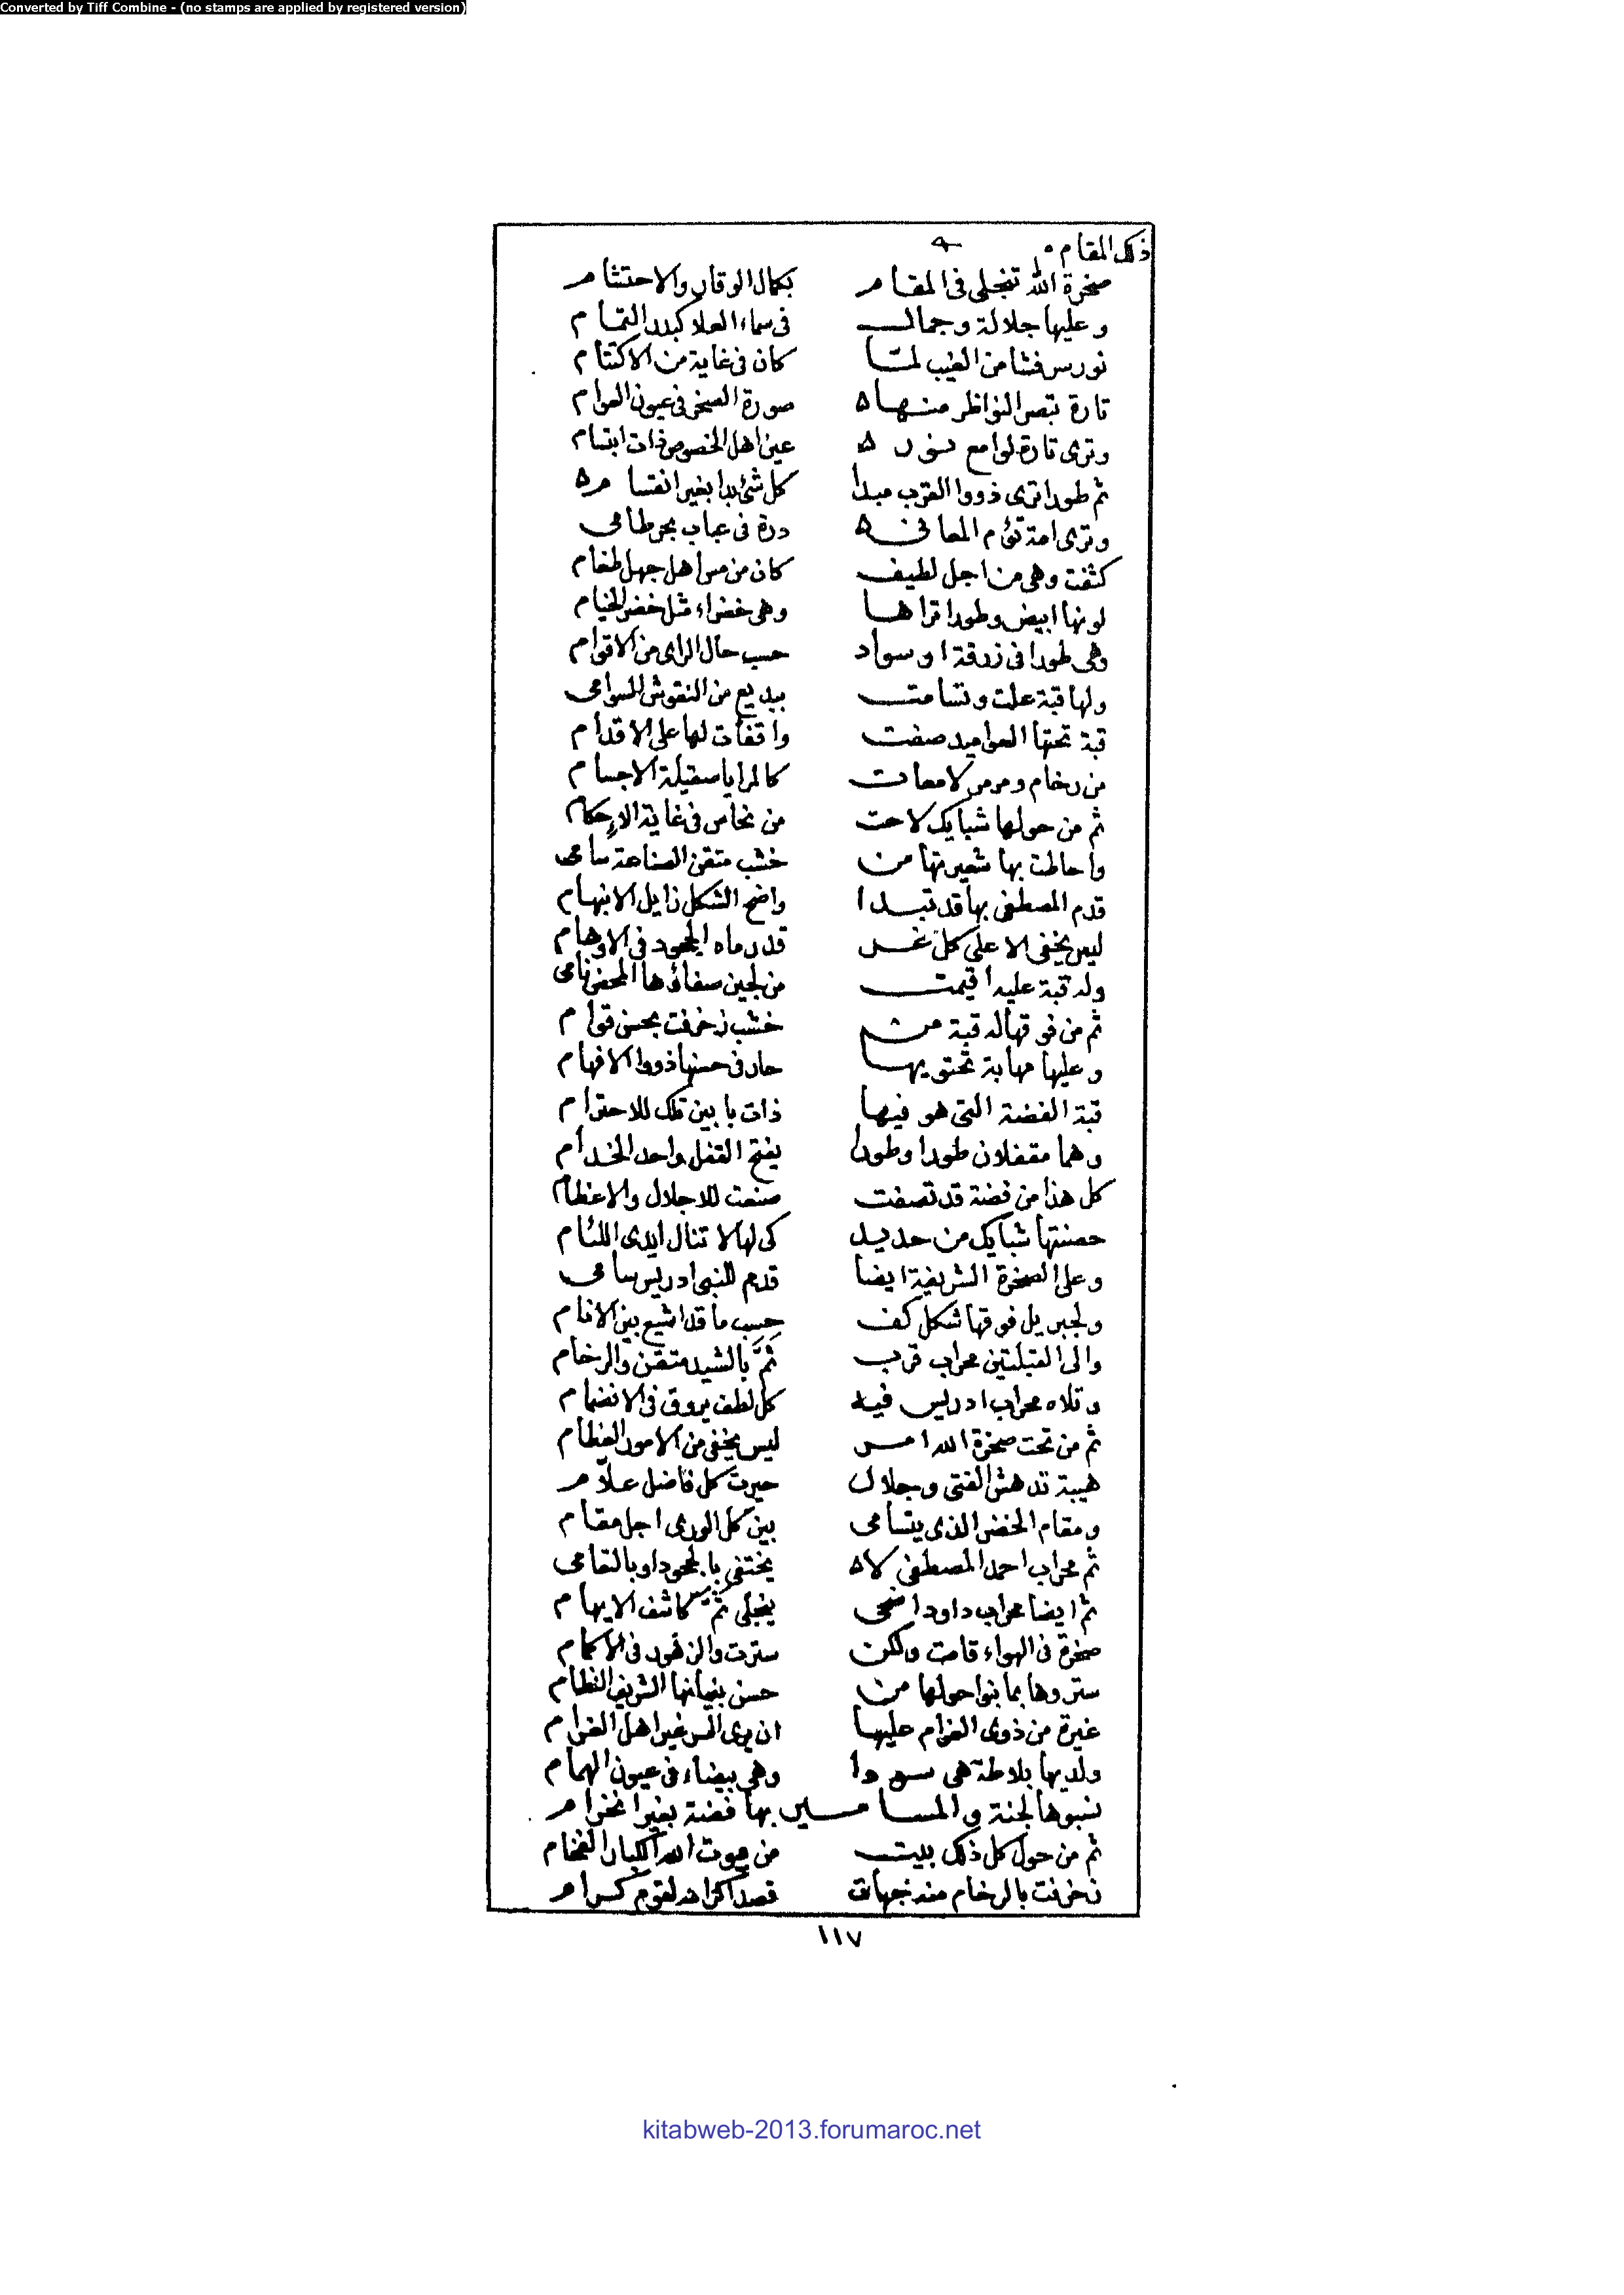 Converted by Tiff Combine - (no stamps are applied by registered version)
ذلك المقام
صخرة الله تنجلى فى المقام بكمال الوقار والاحتشام
وعليها جلالة وجمال فى سماء العلا كبدر التمام
نور سر فشا من الغيب لما كان فى غاية من الاكتتام
تارة تبصر النواظر منها صورة الصخر فى عيون العوام
وترى تارة لوامع نور عين اهل الخصوص ذات ابتسام
ثم طورا ترى ذووا القرب مبدا كل شئ بدا بغير انقسام
وترى امة تؤم المعانى درة فى عباب بحر طامى
كثفت وهى من اجل لطيف كان من مس اهل جهل طغام
لونها ابيض وطورا تراها وهى خضراء مثل خضر الخيام
وهى طورا فى زرقة او سواد حسب حال الراى من الاقوام
ولها قبة علت وتسامت ببديع من النقوش السوامى
قبة تحتها العواميد صفت واقفات لها على الاقدام
من رخام ومرمر لامعات كالمرايا سقيلة الاجسام
ثم من حولها شبابيك لاحت من نحاس فى غاية الإحكام
واحاطت بها شعيرتها من خشب متقن الصناعة سامى
قدم المصطفى بها قد تبدا واضح الشكل زايل الابهام
ليس يخفى الا على كل غر قد رماه الجحود فى الاوهام
وله قبة عليه اقيمت من لجين صفاؤها المحض نامى
ثم من فوقها له قبة من خشب زخرفت بحسن قوام
وعليها مهابة تحتويها حار فى حسنها ذووا الافهام
قبة الفضة التى هو فيها ذات بابين تلك للاحترام
وهما مقفلان طورا وطورا يفتح القفل واحد الخدام
كل هذا من فضة قد تصفت صنعت للاجلال والاعظام
حصنتها شبابيك من حديد كى لها لا تنال ايدى اللئام
وعلى الصخرة الشريفة ايضا قدم للنبى ادريس سامى
ولجبريل فوقها شكل كف حسب ما قد اشيع بين الانام
والى القبلتين محراب قرب ثم بالشيد متقن والرخام
وتلاه محراب ادريس فيه كل لطف يروق فى الانضمام
ثم من تحت صخرة الله امر ليس يخفى من الامور العظام
هيبة تدهش الفتى وجلال حيرت كل فاضل علام
ومقام الخضر الذى يتسامى بين كل الورى اجل مقام
ثم محراب احمد المصطفى لا يختفى بالجحود او بالتعامى
ثم ايضا محراب داود اضحى ينجلى ثم كاشف الابهام
صخرة فى الهواء قامت ولكن سترت والزهور فى الاكمام
ستروها بما بنوا حولها من حسن بنيانها الشريف النظام
غيرة من ذوى الغرام عليها ان يرى السر غير اهل الغرام
ولديها بلاطة هى سودا وهى بيضاء فى عيون الهمام
نسبوها لجنة والمسامير بها فضة بغير انخرام
ثم من حول كل ذلك بيت من بيوت الله الكبار الفخام
زخرفت بالرخام منه جهات قصد اكرامه لقوم كرام
١١٧
kitabweb-2013.forumaroc.net